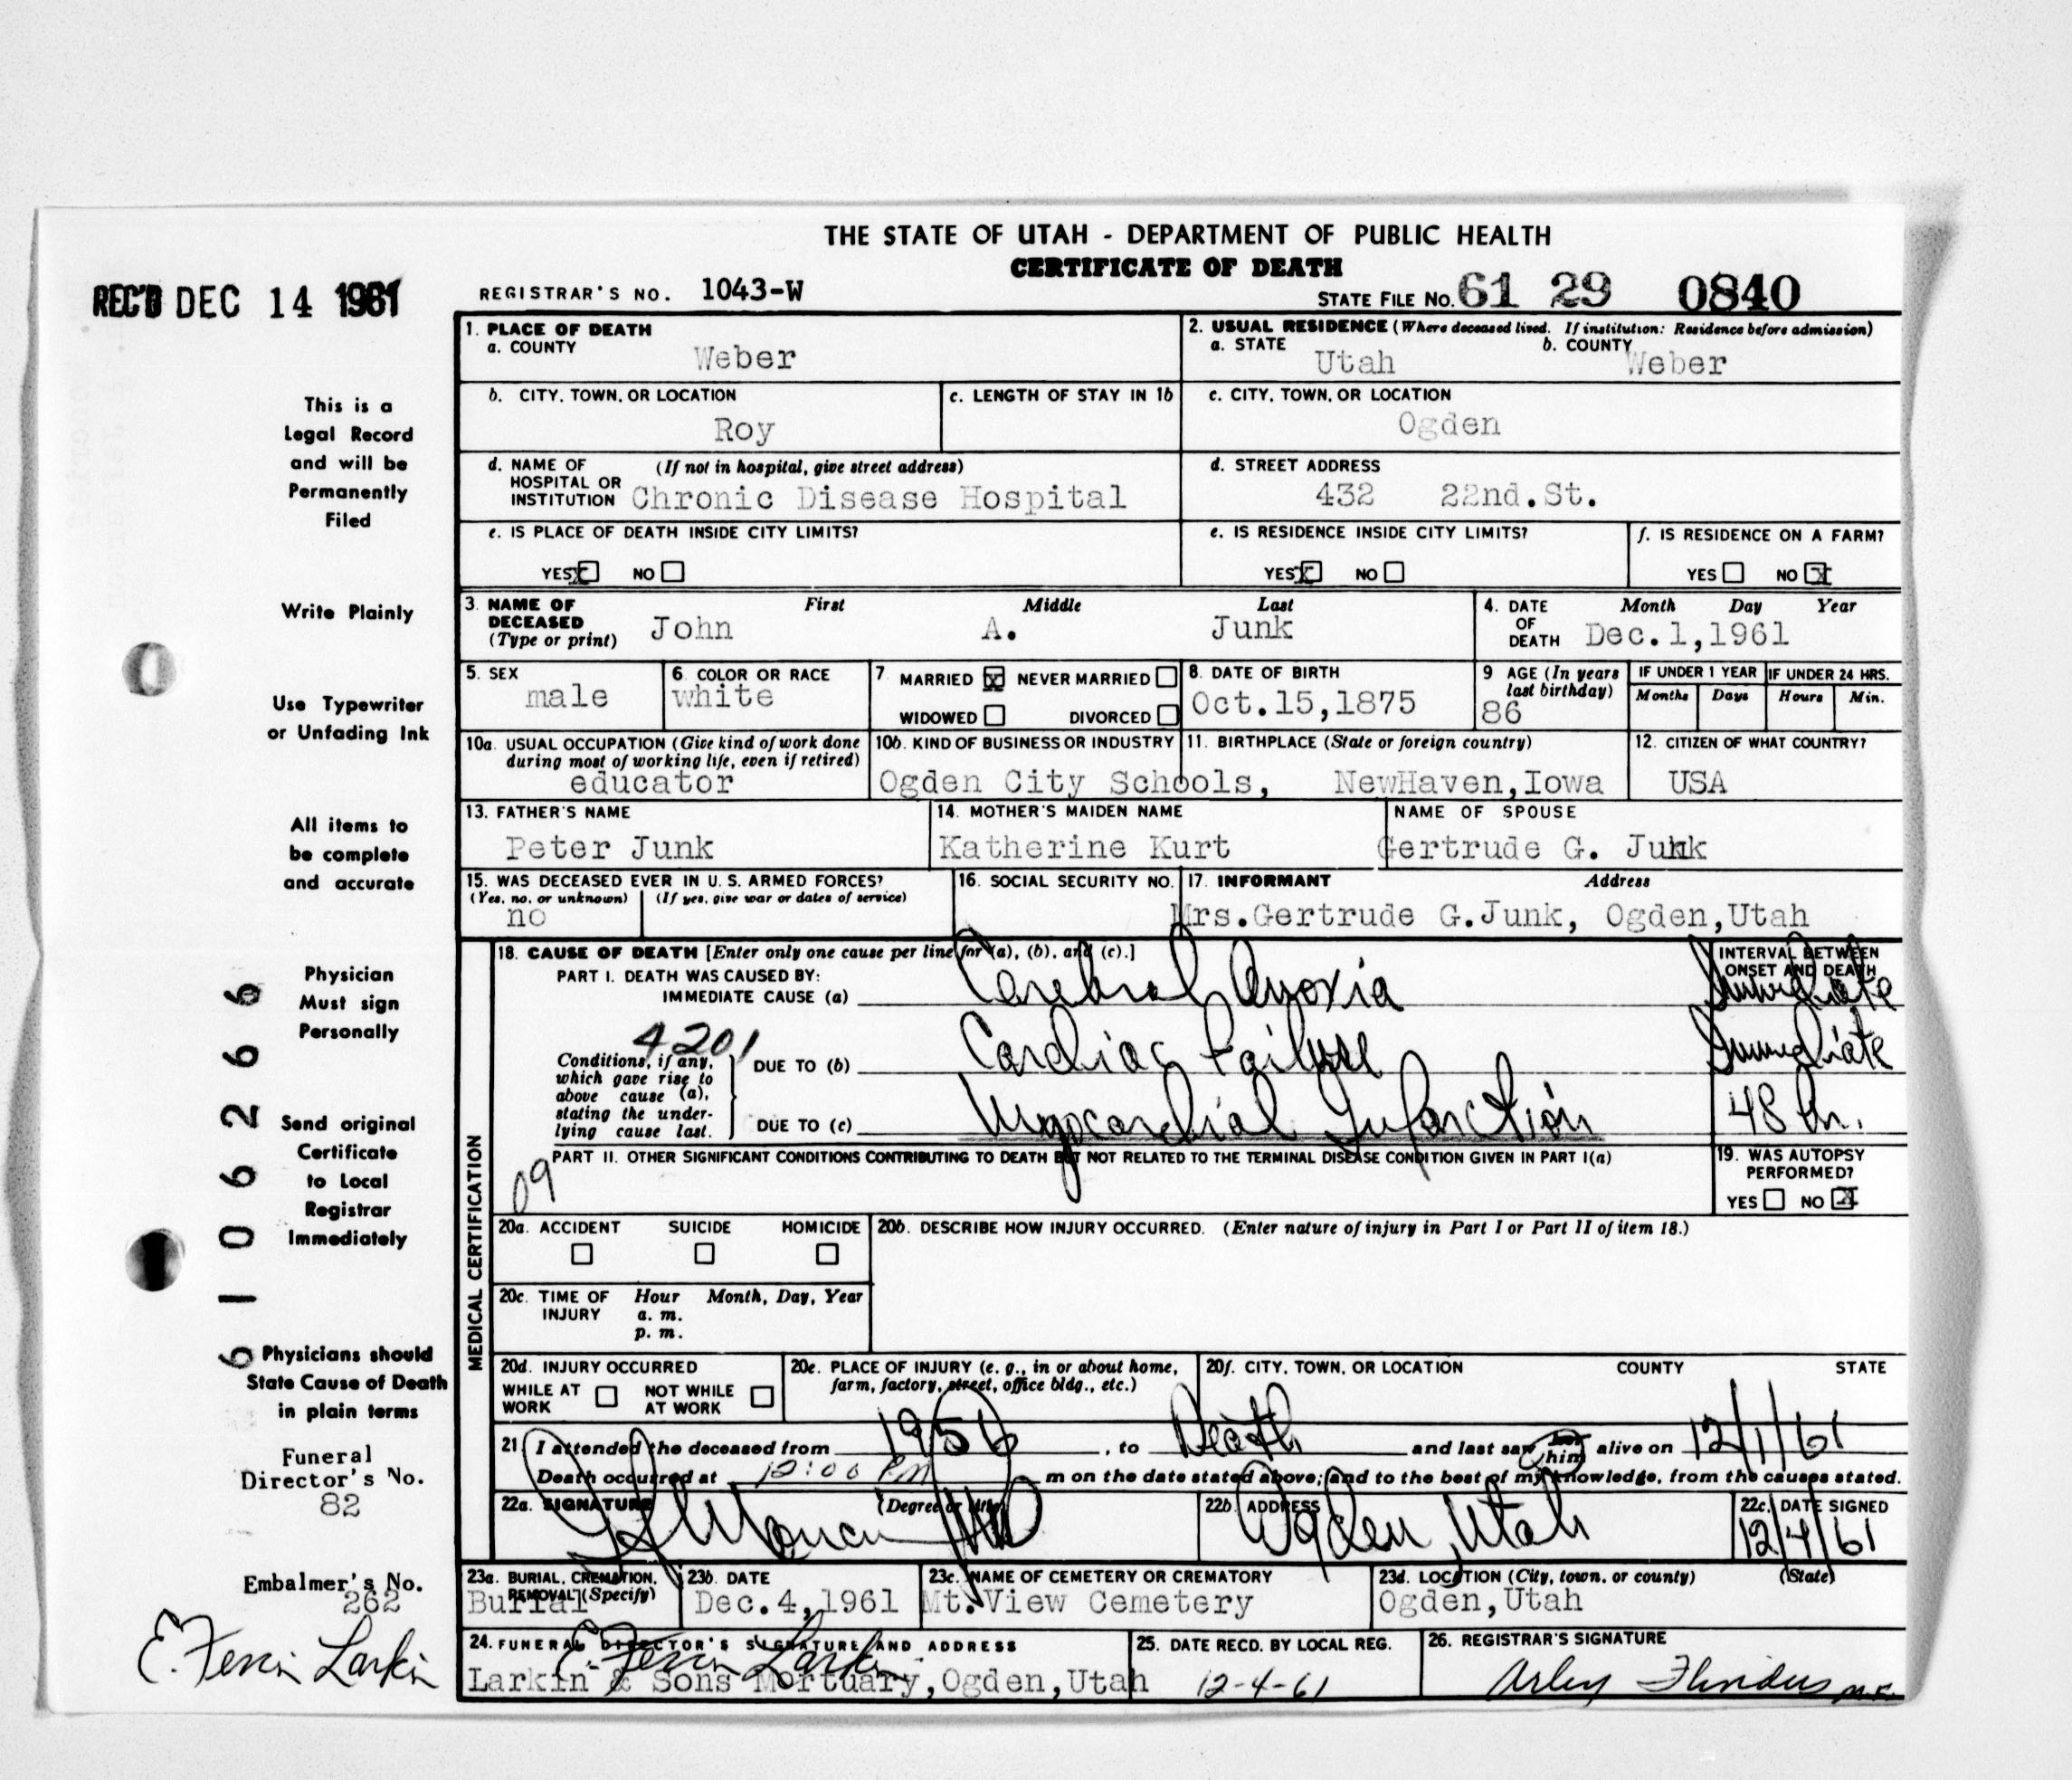 THE STATE OF UTAH - DEPARTMENT OF PUBLIC HEALTH
CERTIFICATE OF DEATH
REC'D DEC 14 1961
REGISTRAR'S NO. 1043-W
STATE FILE No. 61 29 0840
This is a
Legal Record
and will be
Permanently
Filed
Write Plainly
Use Typewriter
or Unfading Ink
All items to
be complete
and accurate
Physician
Must sign
Personally
Send original
Certificate
to Local
Registrar
Immediately
Physicians should
State Cause of Death
in plain terms
Funeral
Director's No.
82
Embalmer's No.
262
E. Larkin
6106266
1. PLACE OF DEATH
a. COUNTY
Weber
2. USUAL RESIDENCE (Where deceased lived. If institution: Residence before admission)
a. STATE
Utah
b. COUNTY
Weber
b. CITY, TOWN, OR LOCATION
Roy
c. LENGTH OF STAY IN 1b
c. CITY, TOWN, OR LOCATION
Ogden
d. NAME OF (If not in hospital, give street address)
HOSPITAL OR
INSTITUTION Chronic Disease Hospital
d. STREET ADDRESS
432 22nd.St.
e. IS PLACE OF DEATH INSIDE CITY LIMITS?
YES x NO
e. IS RESIDENCE INSIDE CITY LIMITS?
YES x NO
f. IS RESIDENCE ON A FARM?
YES NO x
3. NAME OF DECEASED (Type or print)
First Middle Last
John A. Junk
4. DATE OF DEATH
Month Day Year
Dec.1,1961
5. SEX
male
6. COLOR OR RACE
white
7 MARRIED x NEVER MARRIED
WIDOWED DIVORCED
8. DATE OF BIRTH
Oct.15,1875
9 AGE (In years last birthday)
86
IF UNDER 1 YEAR
Months Days
IF UNDER 24 HRS.
Hours Min.
10a. USUAL OCCUPATION (Give kind of work done
during most of working life, even if retired)
educator
10b. KIND OF BUSINESS OR INDUSTRY
Ogden City Schools,
11. BIRTHPLACE (State or foreign country)
NewHaven,Iowa
12. CITIZEN OF WHAT COUNTRY?
USA
13. FATHER'S NAME
Peter Junk
14. MOTHER'S MAIDEN NAME
Katherine Kurt
NAME OF SPOUSE
Gertrude G. Junk
15. WAS DECEASED EVER IN U. S. ARMED FORCES?
(Yes, no, or unknown) (If yes, give war or dates of service)
no
16. SOCIAL SECURITY NO.
17. INFORMANT Address
Mrs.Gertrude G.Junk, Ogden,Utah
MEDICAL CERTIFICATION
18. CAUSE OF DEATH [Enter only one cause per line for (a), (b), and (c).]
PART I. DEATH WAS CAUSED BY:
IMMEDIATE CAUSE (a) Cerebral Anoxia
INTERVAL BETWEEN
ONSET AND DEATH
Immediate
4201
Conditions, if any,
which gave rise to
above cause (a),
stating the under-
lying cause last.
DUE TO (b) Cardiac Failure
Immediate
DUE TO (c) Myocardial Infarction
48 hr.
09
PART II. OTHER SIGNIFICANT CONDITIONS CONTRIBUTING TO DEATH BUT NOT RELATED TO THE TERMINAL DISEASE CONDITION GIVEN IN PART I(a)
19. WAS AUTOPSY
PERFORMED?
YES NO x
20a. ACCIDENT SUICIDE HOMICIDE
20b. DESCRIBE HOW INJURY OCCURRED. (Enter nature of injury in Part I or Part II of item 18.)
20c. TIME OF INJURY
Hour Month, Day, Year
a. m.
p. m.
20d. INJURY OCCURRED
WHILE AT WORK NOT WHILE AT WORK
20e. PLACE OF INJURY (e. g., in or about home,
farm, factory, street, office bldg., etc.)
20f. CITY, TOWN, OR LOCATION COUNTY STATE
21. I attended the deceased from 1956, to Death and last saw him alive on 12/1/61
Death occurred at 12:00 PM m on the date stated above; and to the best of my knowledge, from the causes stated.
22a. SIGNATURE (Degree or title)
MD
22b. ADDRESS
Ogden, Utah
22c. DATE SIGNED
12/4/61
23a. BURIAL, CREMATION,
REMOVAL (Specify)
Burial
23b. DATE
Dec.4,1961
23c. NAME OF CEMETERY OR CREMATORY
Mt.View Cemetery
23d. LOCATION (City, town, or county) (State)
Ogden,Utah
24. FUNERAL DIRECTOR'S SIGNATURE AND ADDRESS
E. Larkin
Larkin & Sons Mortuary,Ogden,Utah
25. DATE RECD. BY LOCAL REG.
12-4-61
26. REGISTRAR'S SIGNATURE
Arley Flinders